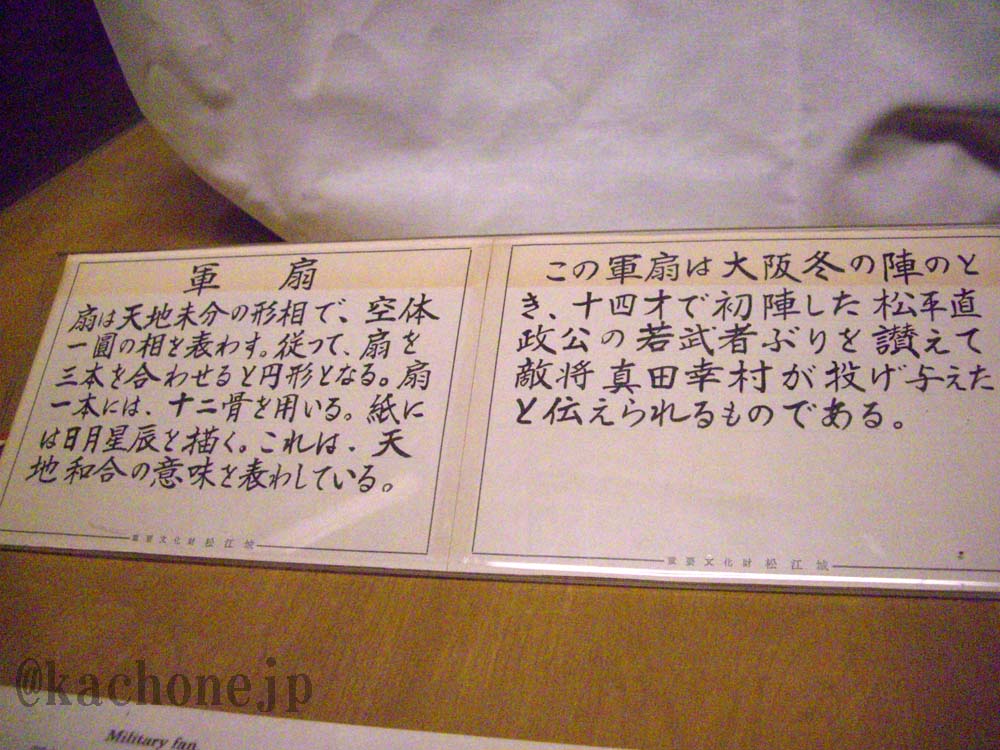 軍扇
扇は天地未分の形相で、空体
一圓の相を表わす。従って、扇を
三本を合わせると円形となる。扇
一本には、十二骨を用いる。紙に
は日月星辰を描く。これは、天
地和合の意味を表わしている。
重要文化財 松江城
この軍扇は大阪冬の陣のと
き、十四才で初陣した松平直
政公の若武者ぶりを讃えて
敵将真田幸村が投げ与えた
と伝えられるものである。
重要文化財 松江城
@kachonejp
Military fan